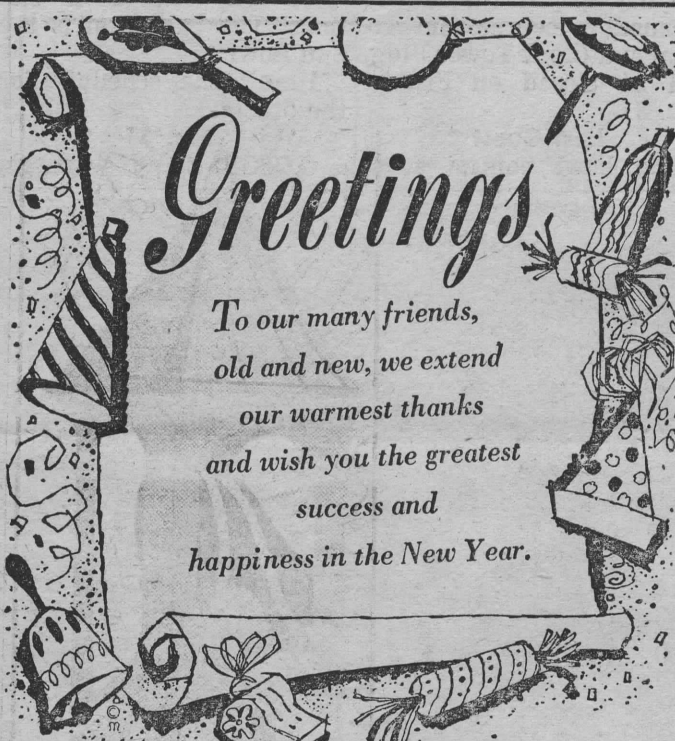 Greetings
To our many friends,
old and new, we extend
our warmest thanks
and wish you the greatest
success and
happiness in the New Year.
©
m